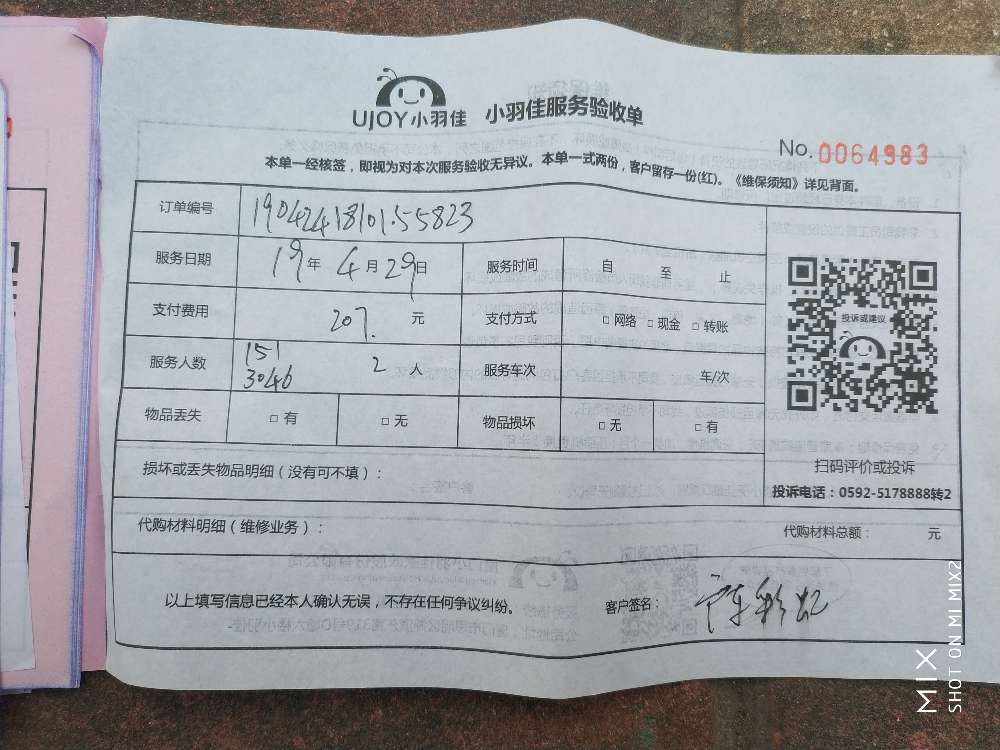 UJOY小羽佳 小羽佳服务验收单
No. 0064983
本单一经核签，即视为对本次服务验收无异议。本单一式两份，客户留存一份(红)。《维保须知》详见背面。
订单编号 19042418101.55823
服务日期 19年 4月 29日 服务时间 自 至 止
支付费用 207. 元 支付方式 □网络 □现金 □转账
服务人数 151 3046 2 人 服务车次 车/次
物品丢失 □有 □无 物品损坏 □无 □有
投诉或建议
扫码评价或投诉
投诉电话：0592-5178888转2
损坏或丢失物品明细（没有可不填）：
代购材料明细（维修业务）： 代购材料总额： 元
以上填写信息已经本人确认无误，不存在任何争议纠纷。 客户签名：
MIX
SHOT ON MI MIX2